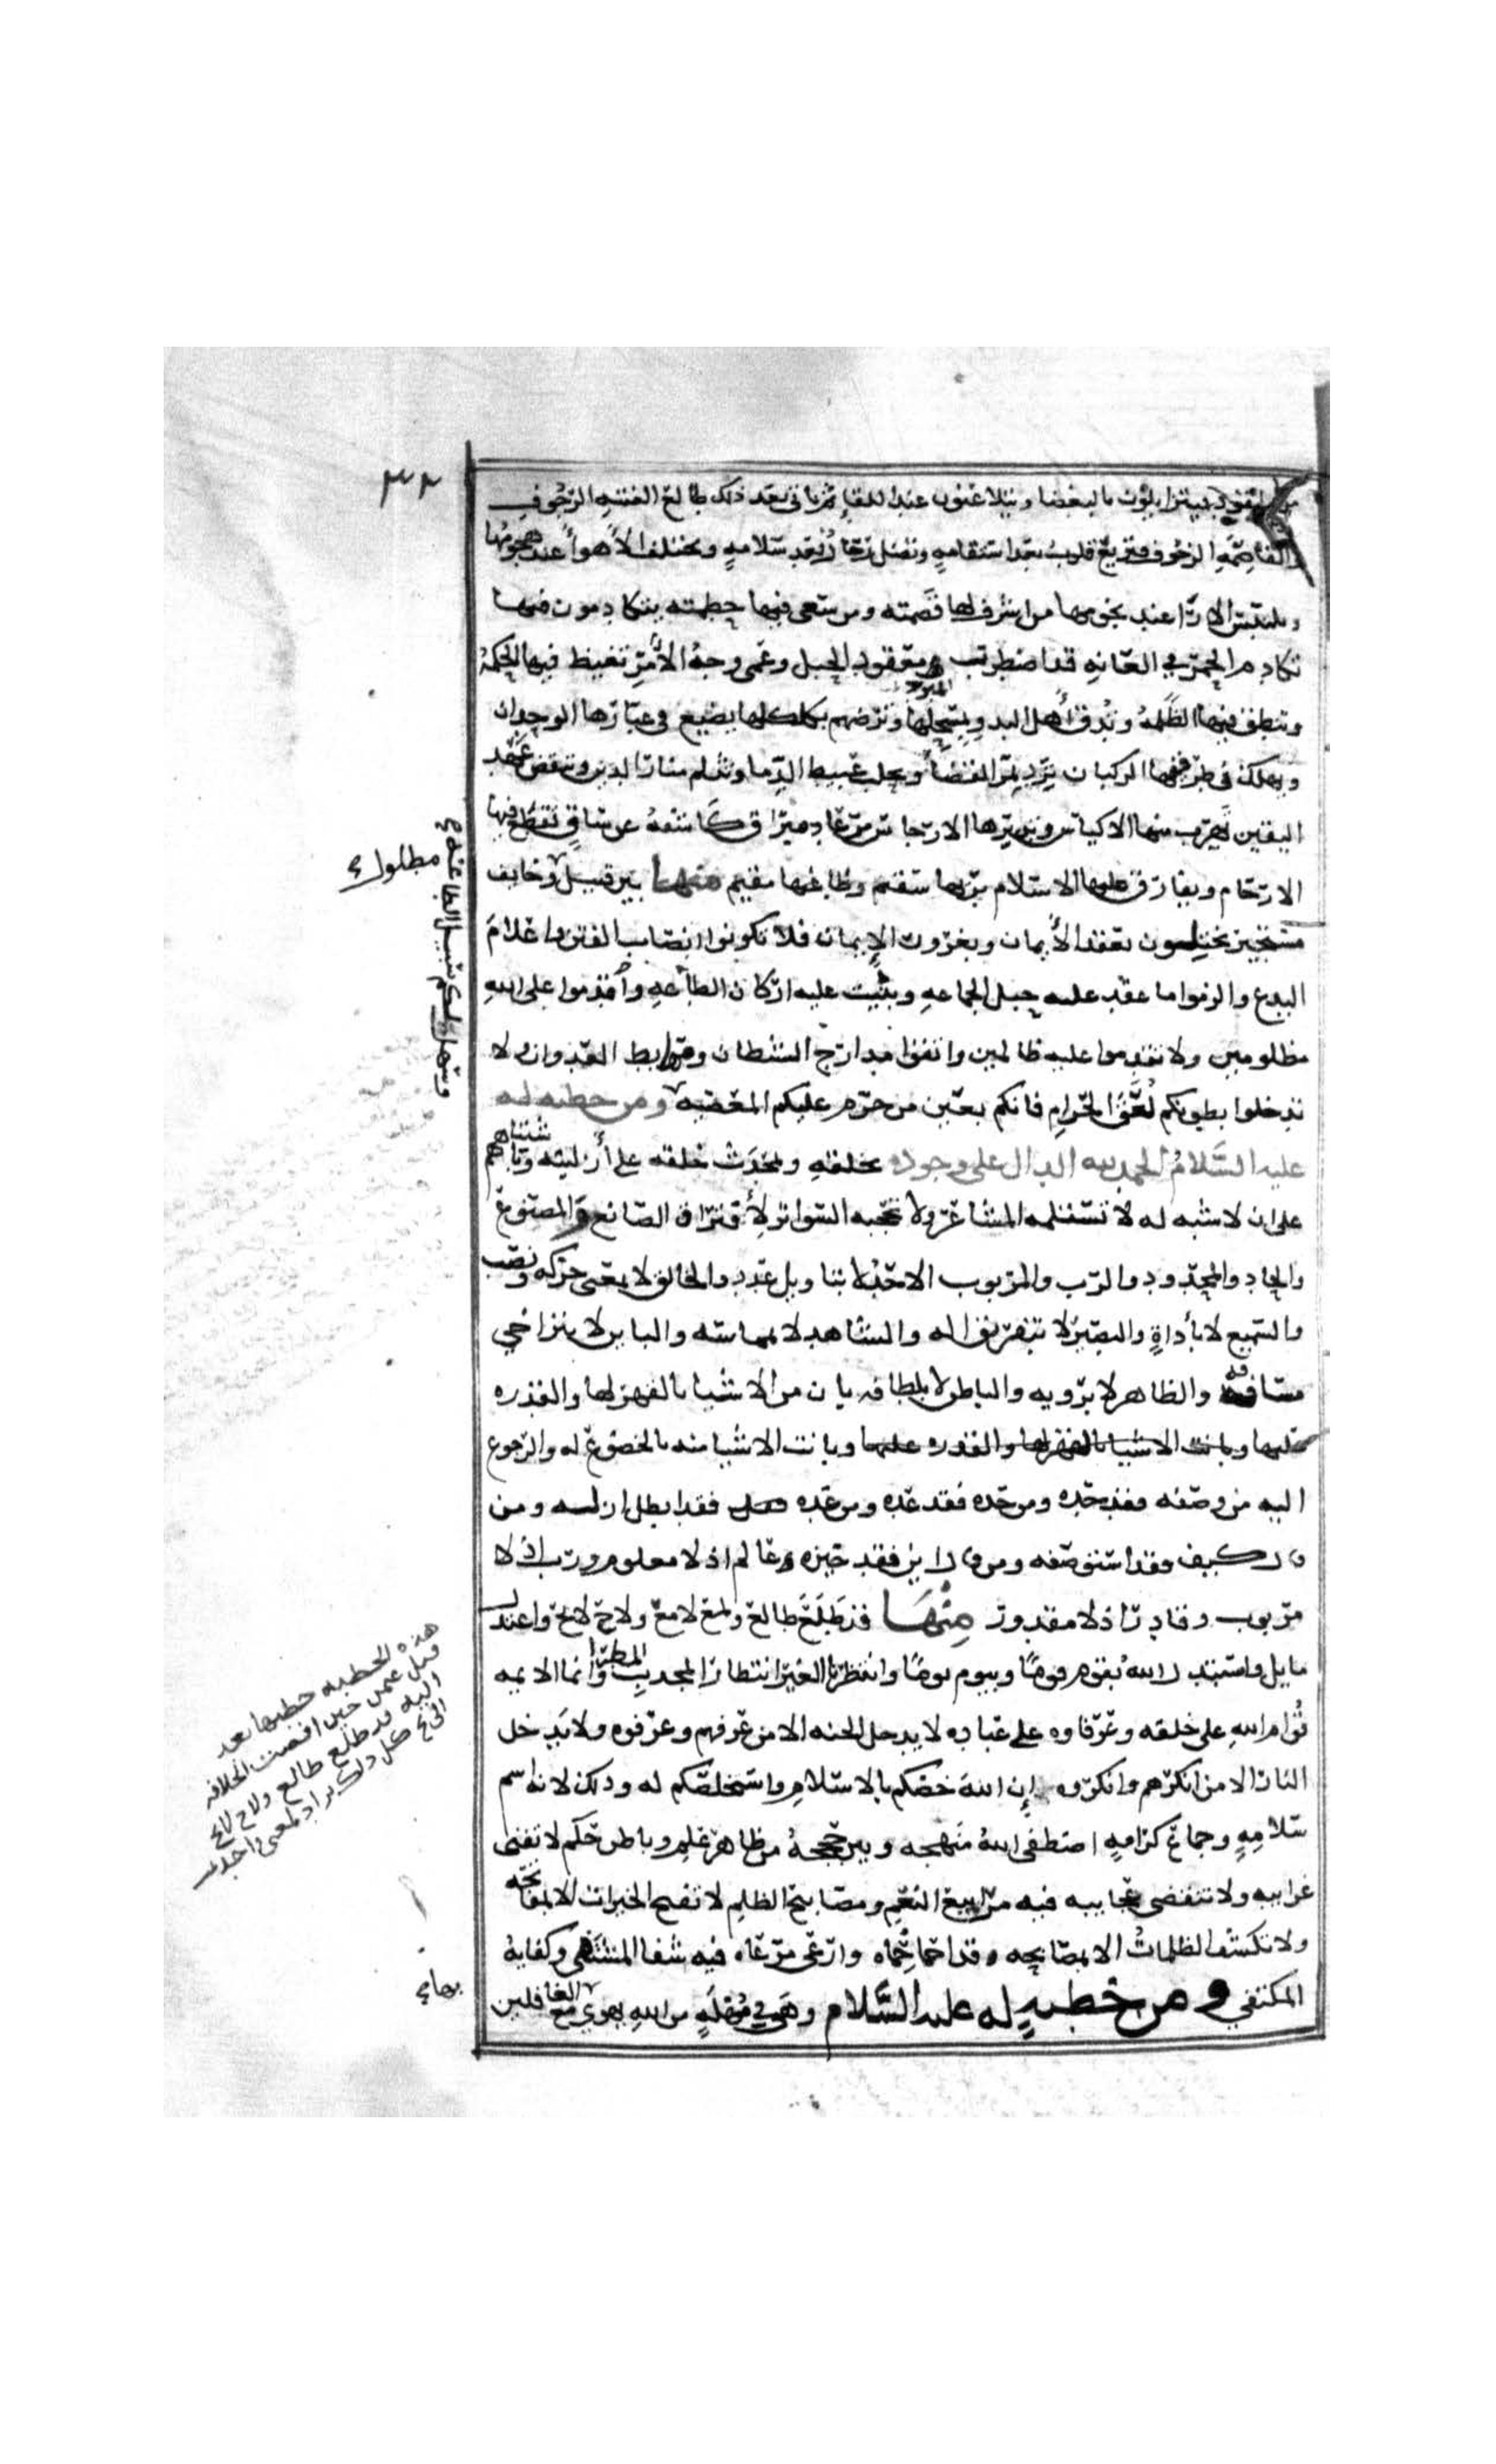 ٣٢
المقود فيتزايلون بالبغضا ويتلاعنون عند اللقاء ثم ياتى بعد ذلك طالع الفتنه الرجوف
والقاصمه الزحوف فتزيغ قلوب بعد استقامه وتضل رجال بعد سلامه وتختلف الاهواء عند هجومها
وتلتبس الارا عند نجومها من اشرف لها قصمته ومن سعى فيها حطمته يتكادمون فيها
تكادم الحمر في العانه قد اضطرب معقود الحبل وعمى وجه الأمر تغيض فيها الحكمه
وتنطق فيها الظلمه وتدق أهل البدو بمسحلها وترضهم بكلكلها يضيع في غبارها الوحدان
ويهلك في طريقها الركبان ترد بمر القضاء وتحلب عبيط الدما وتثلم منار الدين وتنقض عقد
اليقين تهرب منها الاكياس وتدبرها الارجاس مرعاد مبراق كاشفة عن ساق تقطع فيها
الارحام ويفارق عليها الاسلام بريها سقيم وظاعنها مقيم منها بين قتيل وخايف
مستجير يختلون بعقد الأيمان وبغرور الإيمان فلا تكونوا انصاب الفتن واعلام
البدع والزموا ما عقد عليه حبل الجماعه وبنيت عليه اركان الطاعه وأقدموا على الله
مظلومين ولا تقدموا عليه ظالمين واتقوا مدارج الشيطان ومهابط العدوان ولا
تدخلوا بطونكم لعق الحرام فانكم بعين من حرم عليكم المعصيه ومن خطبه له
عليه السلام الحمد لله الدال على وجوده بخلقه وبمحدث خلقه على أزليته وباشتباههم
على ان لا شبه له لا تستلمه المشاعر ولا تحجبه السواتر لأفتراق الصانع والمصنوع
والحاد والمحدود والرب والمربوب الاحد لا بتاويل عدد والخالق لا بمعنى حركه ونصب
والسميع لا بأداة والبصير لا بتفريق اله والشاهد لا بمماسته والباين لا بتراخي
مسافه والظاهر لا برويه والباطن لا بلطافه بان من الاشيا بالقهر لها والقدره
عليها وبانت الاشيا بالقهر لها والقدره عليها وبانت الاشيا منه بالخضوع له والرجوع
اليه من وصفه فقد حده ومن حده فقد عده ومن عده فقد ابطل ازله ومن
قال كيف فقد استوصفه ومن قال اين فقد حيزه عالم اذ لا معلوم ورب اذ لا
مربوب وقادر اذ لا مقدور منها قد طلع طالع ولمع لامع ولاح لايح واعتدل
مايل واستبدل الله بقوم قوما وبيوم يوما وانتظرنا الغير انتظار المجدب المطر وانما الايمه
قوام الله على خلقه وعرفاوه على عباده لا يدخل الجنه الا من عرفهم وعرفوه ولا يدخل
النار الا من انكرهم وانكروه إن الله خصكم بالاسلام واستخلصكم له وذلك لانه اسم
سلامه وجماع كرامه اصطفى الله منهجه وبين حججه من ظاهر علم وباطن حكم لا تفنى
غرايبه ولا تنقضى عجايبه فيه مرابيع النعم ومصابيح الظلم لا تفتح الخيرات الا بمفاتحه
ولا تكشف الظلمات الا بمصابحه قد احما حماه وارعى مرعاه فيه شفا المشتفى وكفايه
المكتفي ومن خطبه له عليه السلام وهو في مهله من الله يهوي مع الغافلين
مطلول
وسهل لكم سبيل الطاعة
هذه الخطبه خطبها بعد
قتل عثمن حين افضت الخلافه
اليه قد طلع طالع ولاح لايح
الخ كل ذلك يراد لمعنى واحد